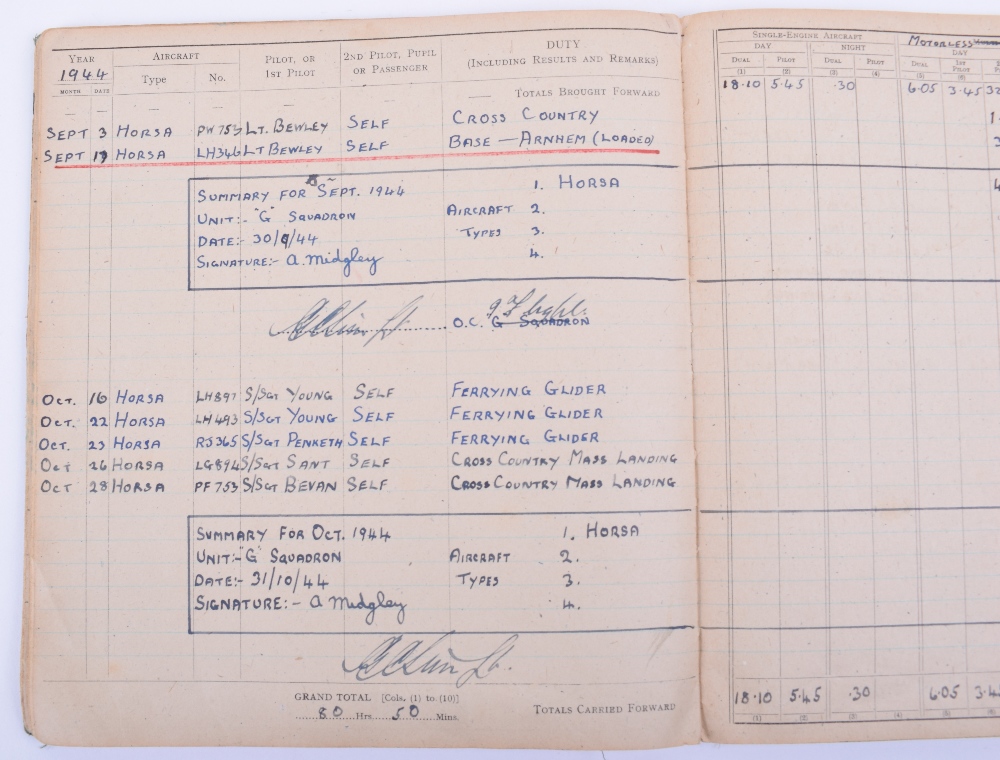 YEAR AIRCRAFT PILOT, OR 1ST PILOT 2ND PILOT, PUPIL OR PASSENGER DUTY (INCLUDING RESULTS AND REMARKS)
1944 Type No.
MONTH DATE
— — — — — — TOTALS BROUGHT FORWARD
SEPT 3 HORSA PW 753 LT. BEWLEY SELF CROSS COUNTRY
SEPT 17 HORSA LH346 LT BEWLEY SELF BASE — ARNHEM (LOADED)
SUMMARY FOR SEPT. 1944 1. HORSA
UNIT:- "G" SQUADRON AIRCRAFT 2.
DATE:- 30/9/44 TYPES 3.
SIGNATURE:- A. Midgley 4.
O.C. G SQUADRON
OCT. 16 HORSA LH897 S/SGT YOUNG SELF FERRYING GLIDER
OCT. 22 HORSA LH493 S/SGT YOUNG SELF FERRYING GLIDER
OCT. 23 HORSA RJ365 S/SGT PENKETH SELF FERRYING GLIDER
OCT 26 HORSA LG894 S/SGT SANT SELF CROSS COUNTRY MASS LANDING
OCT 28 HORSA PF753 S/SGT BEVAN SELF CROSS COUNTRY MASS LANDING
SUMMARY FOR OCT. 1944 1. HORSA
UNIT:- "G" SQUADRON AIRCRAFT 2.
DATE:- 31/10/44 TYPES 3.
SIGNATURE:- A Midgley 4.
GRAND TOTAL [Cols. (1) to (10)]
80 Hrs. 50 Mins. TOTALS CARRIED FORWARD
SINGLE-ENGINE AIRCRAFT MOTORLESS
DAY NIGHT DAY
DUAL PILOT DUAL PILOT DUAL 1ST PILOT
(1) (2) (3) (4) (5) (6)
18.10 5.45 .30 6.05 3.45 32
18.10 5.45 .30 6.05 3.4
(1) (2) (3) (4) (5) (6)